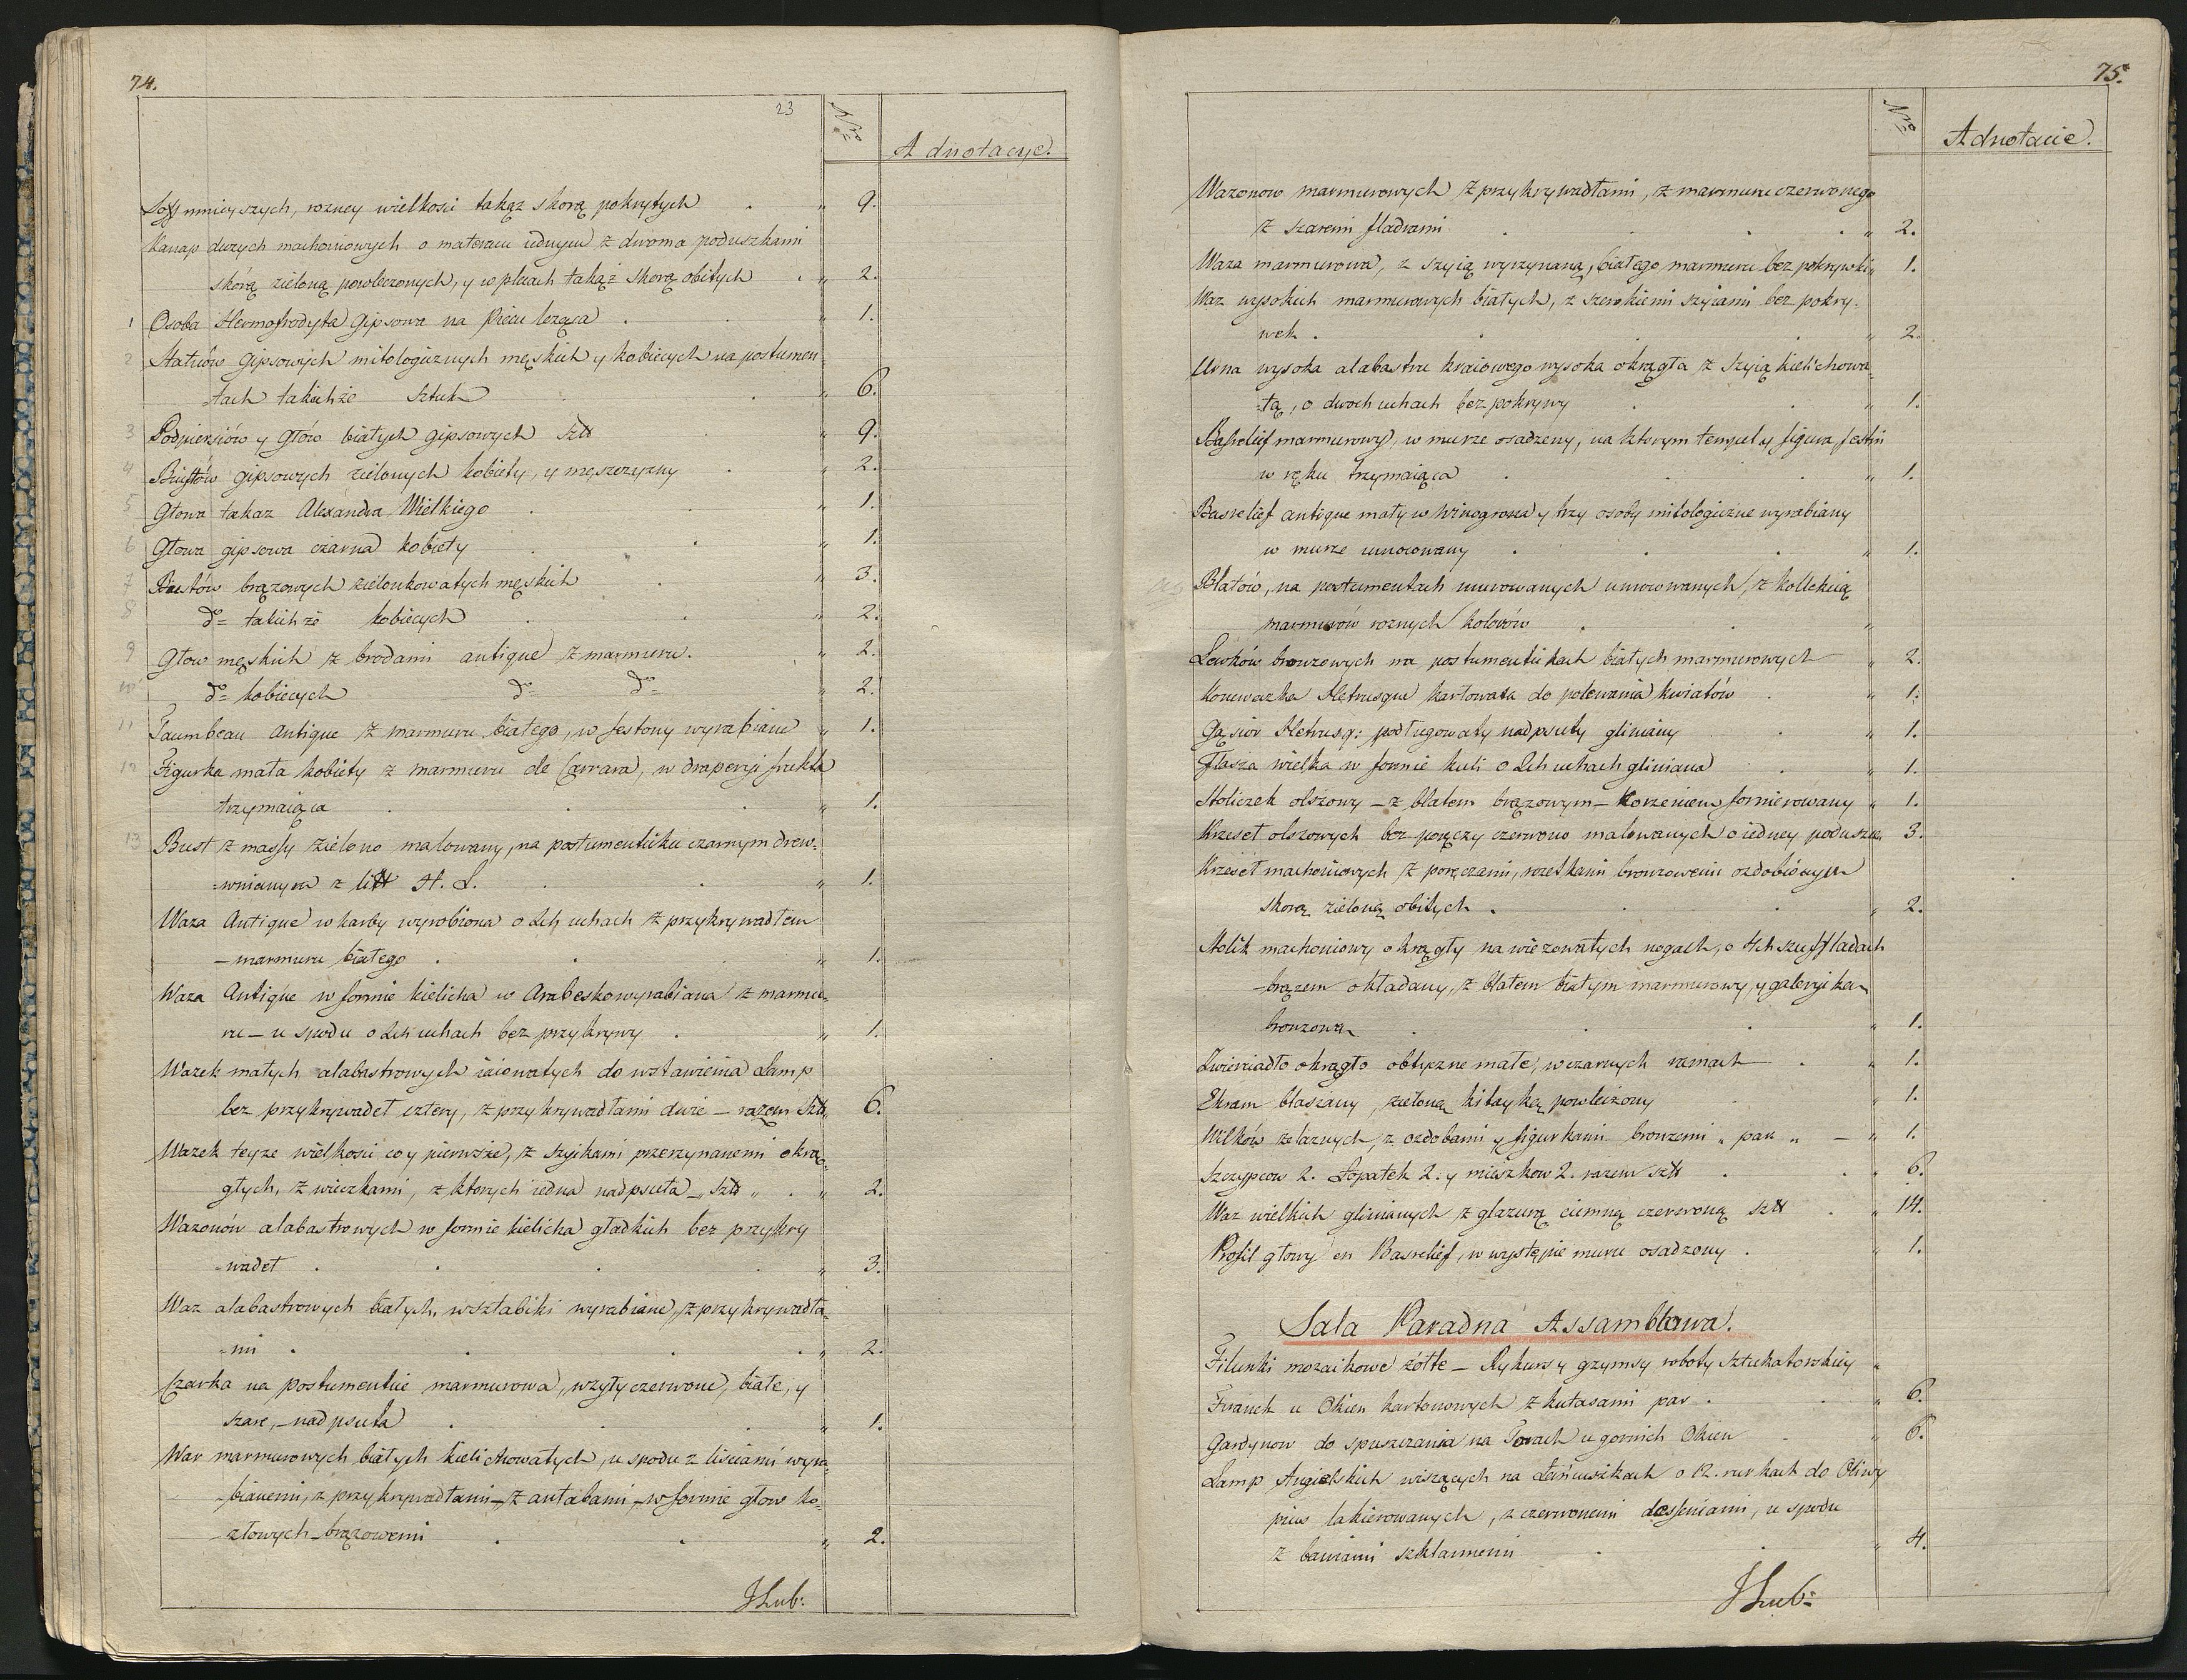 74.
23
Nro
Adnotacye.
Sof mnieyszych, rozney wielkosci takąz skorą pokrytych . „ 9.
Kanap duzych machoniowych o materacu iednym z dwoma poduszkami
skórą zieloną powleczonych, y w plecach takąż skorą obitych . „ 2.
1 Osoba Hermofrodyta gipsowa na Piecu leząca . . „ 1.
2 Statuów gipsowych mitologicznych męskich y kobiecych na postumen
tach takichże Sztuk . „ 6.
3 Podpiersiów y Głów białych gipsowych szt . „ 9.
4 Biustów gipsowych zielonych kobiety, y męszczyzny . „ 2.
5 Głowa takaz Alexandra Wielkiego . . „ 1.
6 Głowa gipsowa czarna kobiety . . „ 1.
7 Bustów brązowych zielonkowatych męskich . „ 3.
8 do= takichże kobiecych . . „ 2.
9 Głow męskich z brodami antique z marmuru. „ 2.
10 do= kobiecych do= do= „ 2.
11 Taumbeau antique z marmuru białego, w festony wyrabiane „ 1.
12 Figurka mała kobiety z marmuru de Carrara, w draperyi frukta
trzymaiąca . . . „ 1.
13 Bust z massy zielono malowany, na postumenciku czarnym drew-
=wnianym z litt H. L. . . „ 1.
Waza Antique w karby wyrobiona o 2ch uchach z przykrywadłem
– marmuru białego . . . „ 1.
Waza Antique w formie kielicha w Arabesko wyrabiana z marmu-
ru – u spodu o 2ch uchach bez przykrywy . „ 1.
Wazek małych alabastrowych iaiowatych do wstawienia Lamp
bez przykrywadeł cztery, z przykrywadłami dwie – razem szt „ 6.
Wazek teyze wielkosci co y pierwsze, z szyikami przerzynanemi okrą-
głych, z wieczkami, z ktorych iedna nadpsuta – szt „ . „ 2.
Wazonów alabastrowych w formie kielicha gładkich bez przykry
-wadeł . . . . „ 3.
Waz alabastrowych białych, wsztabiki wyrabiane, z przykrywadła-
-mi . . . . „ 2.
Czarka na postumencie marmurowa, wzyły czerwone, białe, y
szare, – nadpsuta . . . „ 1.
Waz marmurowych białych kielichowatych, u spodu z lisciami wyra-
-bianemi, z przykrywadłami – z antabami, – w formie głow ko-
-złowych – brązowemi . . „ 2.
JLub:
75.
Nro
Adnotacie.
Wazonow marmurowych z przykrywadłami, z marmuru czerwonego
z szaremi fladrami . . . . „ 2.
Waza marmurowa, z szyią wyrzynaną, białego marmuru bez pokrywki „ 1.
Waz wysokich marmurowych białych, z szerokiemi szyiami bez pokry-
wek . . . . „ 2.
Urna wysoka alabastru kraiowego wysoka okrągła z szyią kielichowa-
-tą, o dwoch uchach bez pokrywy . . „ 1.
Basrelief marmurowy, w murze osadzony, na ktorym tempel y figura, festin
w ręku trzymaiąca . . . „ 1.
Basrelief antique mały w winogrona y trzy osoby mitologiczne wyrabiany
w murze umocowany . . . „ 1.
Blatów, na postumentach murowanych umocowanych, z kollekcią
marmurów roznych kolorów . . „
Lewków bronzowych na postumencikach białych marmurowych „ 2.
Konewaczka Hetrusque karbowata do polewania kwiatów . „ 1.
Gąsior Hetrusq: podługowaty nadpsuty gliniany . „ 1.
Flasza wielka w formie kuli o 2ch uchach gliniana . „ 1.
Stoliczek olszowy – z blatem brązowym – korzeniem fornierowany „ 1.
Krzeseł olszowych bez poręczy czerwono malowanych o iedney poduszce „ 3.
Krzeseł machoniowych z poręczami, rozetkami bronzowemi ozdobionym
skorą zieloną obitych . . . „ 2.
Stolik machoniowy okrągły na wiezowatych nogach, o 4ch szufladach
– brązem okładany, z blatem białym marmurowy, y galeryiką
bronzową . . . „ 1.
Zwierciadło okrągło obtyczne małe, w czarnych ramach . „ 1.
Ekran blaszany, zieloną kitayką powleczony . „ 1.
Wilków żelaznych, z ozdobami y figurkami bronzemi „ par „ – „ 1.
Szczypcow 2. Łopatek 2. y mieszkow 2. razem szt . . „ 6.
Waz wielkich glinianych z glazurą ciemną czerwoną szt . „ 14.
Profil głowy en Basrelief, w występie muru osadzony . „ 1.
Sala Paradna Assamblowa.
Filunki mozaikowe żółte – Rykursy grzymsy roboty sztukatorskiey „
Firanek u Okien kartonowych z kutasami par . . „ 6.
Gardynow do spuszczania na Torach u gornich Okien . „ 6.
Lamp Angielskich wiszących na Łańcuszkach o 12. rurkach do Oliwy
pius lakierowanych, z czerwonemi desseniami, u spodu
z baniami szklannemi . . „ 4.
JLub: